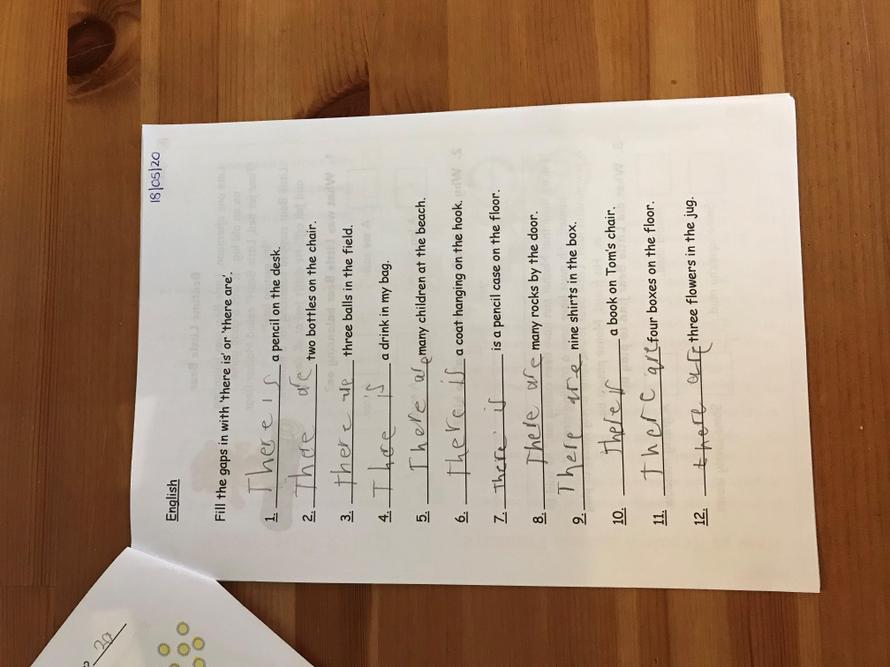 18/05/20
English
Fill the gaps in with 'there is' or 'there are'.
1. There is a pencil on the desk.
2. Thore are two bottles on the chair.
3. there are three balls in the field.
4. Thore is a drink in my bag.
5. There are many children at the beach.
6. there is a coat hanging on the hook.
7. There is is a pencil case on the floor.
8. There are many rocks by the door.
9. There are nine shirts in the box.
10. there is a book on Tom's chair.
11. There are four boxes on the floor.
12. there are three flowers in the jug.
20